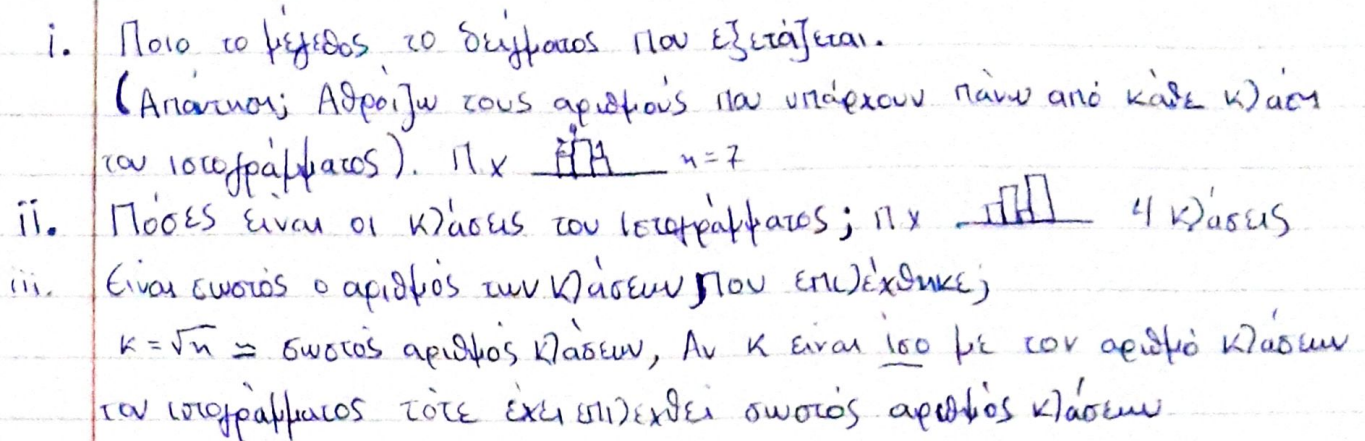 i. Ποιο το μέγεθος το δείγματος που εξετάζεται.
(Απάντηση; Αθροίζω τους αριθμούς που υπάρχουν πάνω από κάθε κλάση
του ιστογράμματος). Πχ n=7
ii. Πόσες είναι οι κλάσεις του ιστογράμματος; πχ 4 κλάσεις
iii. Είναι σωστός ο αριθμός των κλάσεων που επιλέχθηκε;
κ=√n ≈ σωστός αριθμός κλάσεων, Αν κ είναι ίσο με τον αριθμό κλάσεων
του ιστογράμματος τότε έχει επιλεχθεί σωστός αριθμός κλάσεων